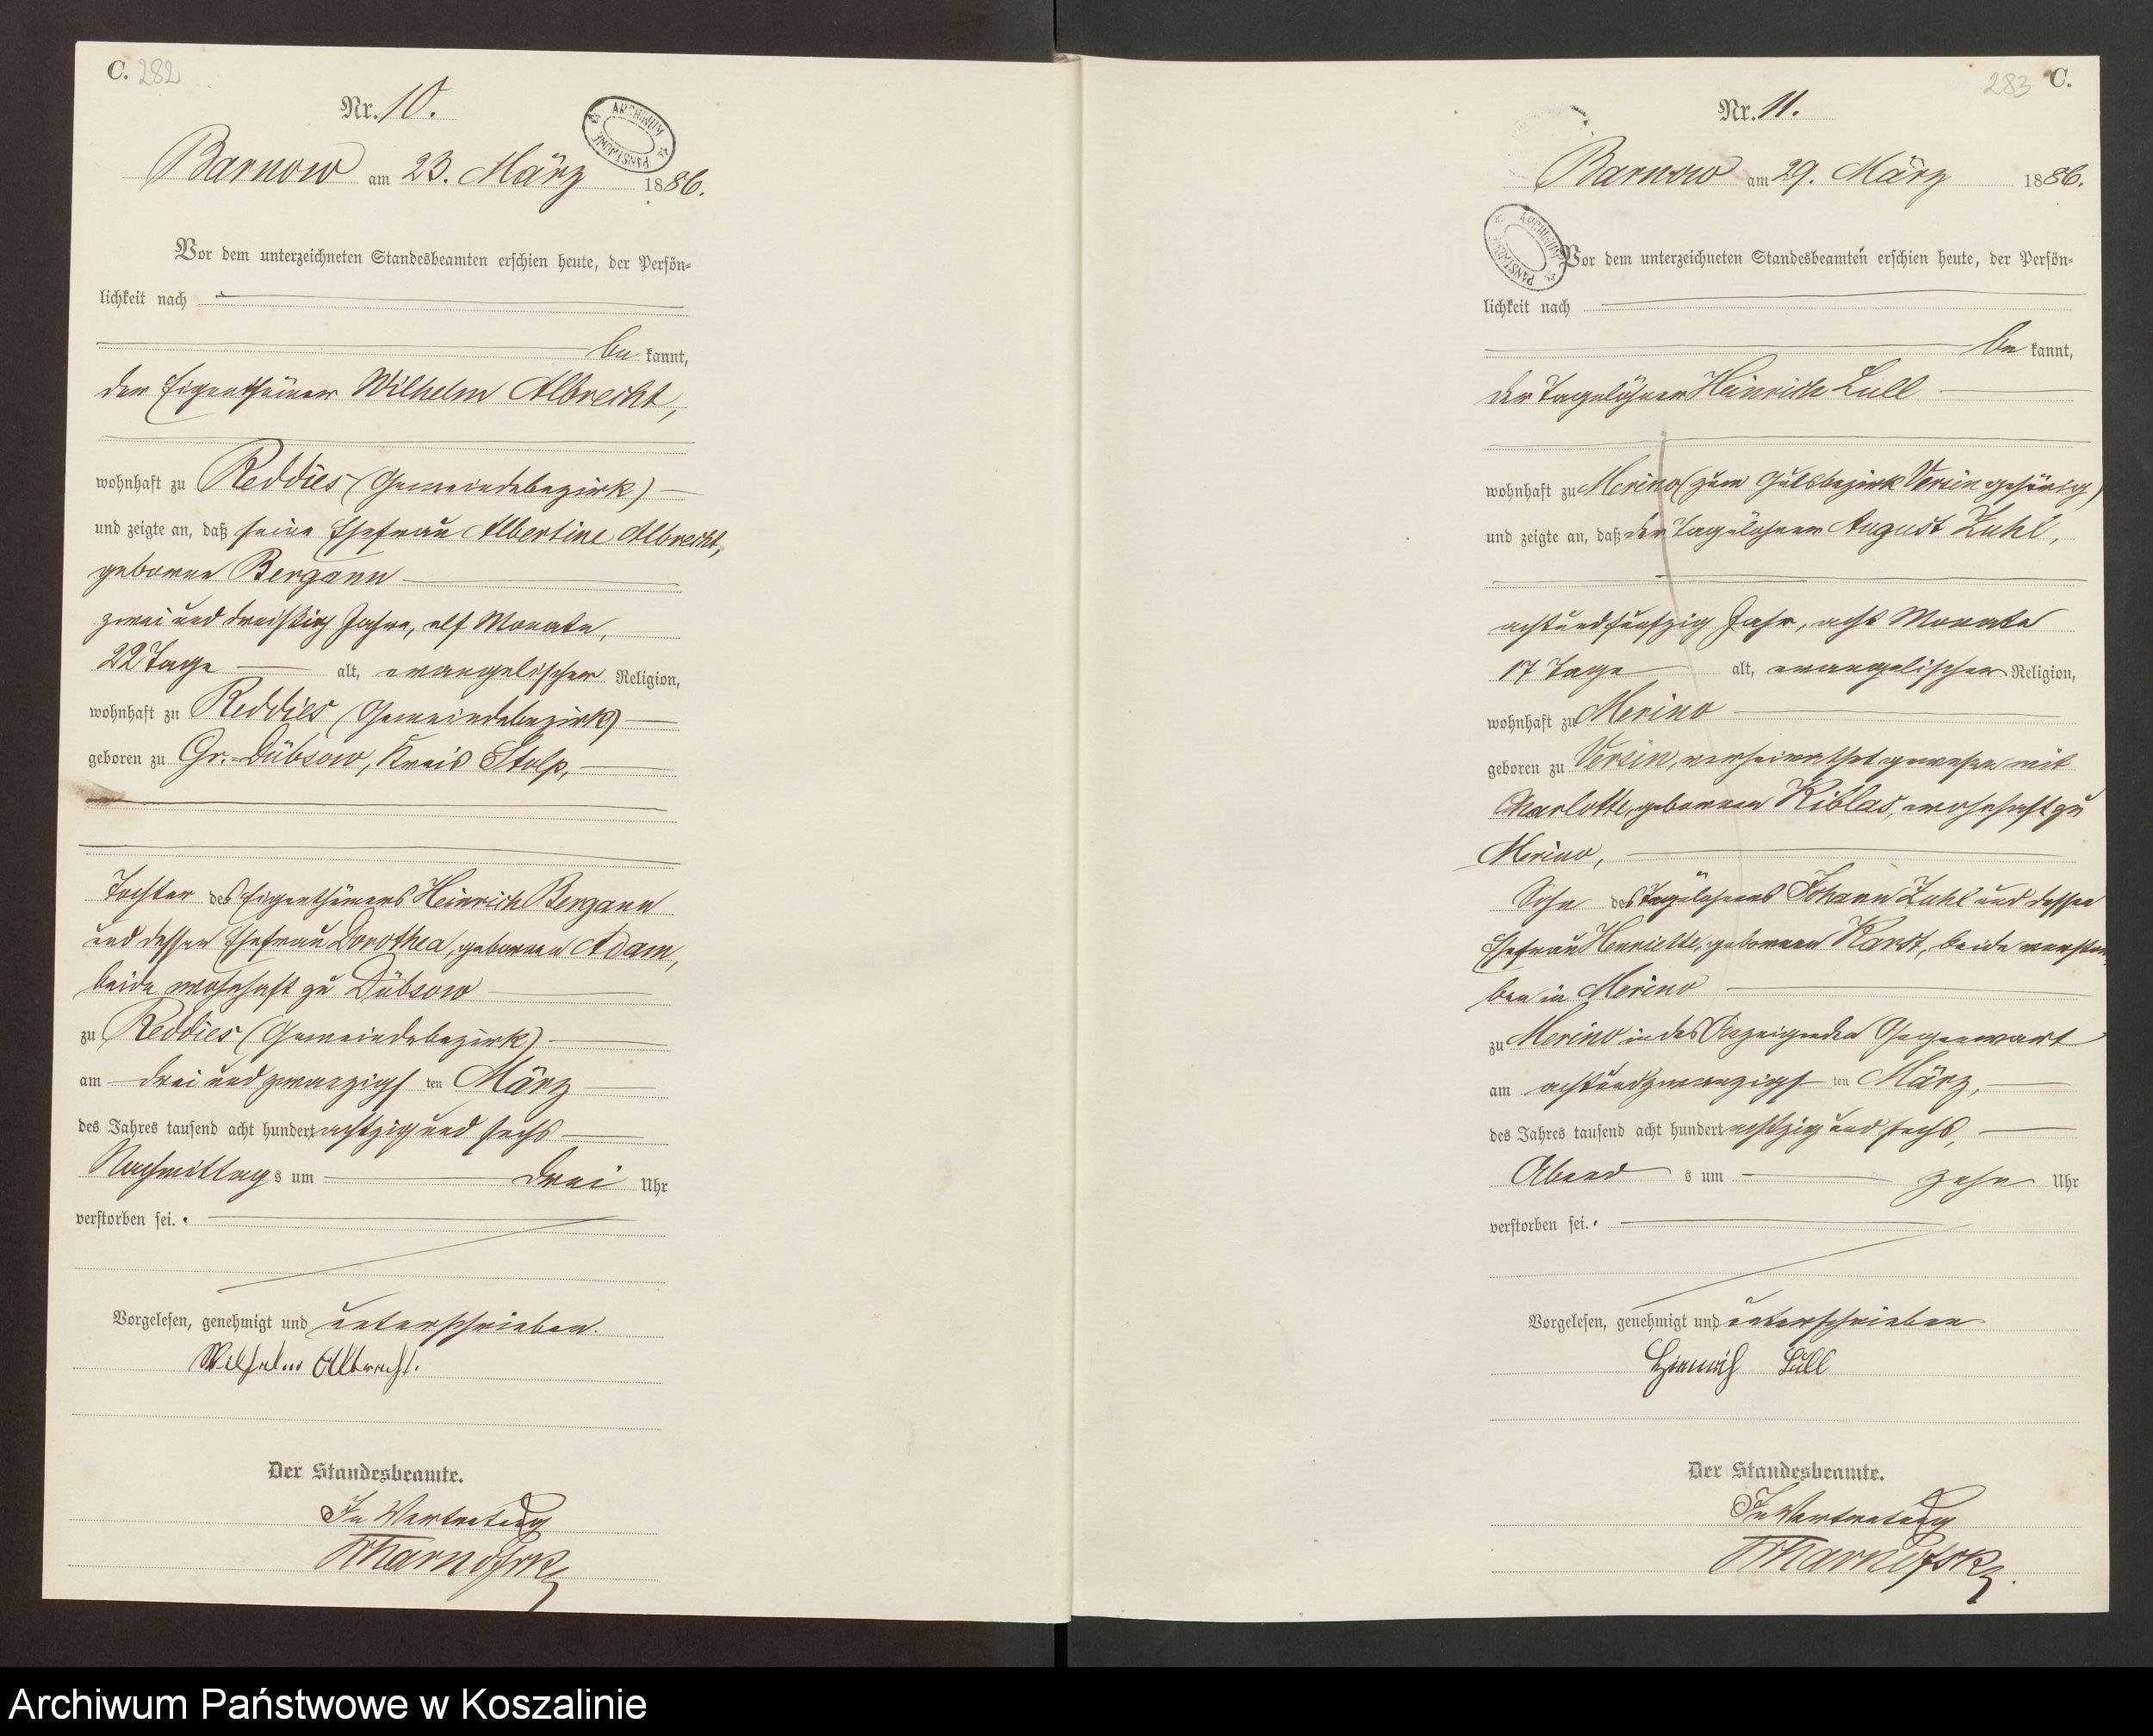 C. 282
Nr. 10.
ARCHIWUM PAŃSTWOWE
Barnow am 23. März 1886.
Vor dem unterzeichneten Standesbeamten erschien heute, der Persön-
lichkeit nach
be kannt,
der Eigenthümer Wilhelm Albrecht,
wohnhaft zu Reddies (Gemeindebezirk)
und zeigte an, daß seine Ehefrau Albertine Albrecht,
geborne Bergann
zwei und dreißig Jahre, elf Monate,
22 Tage alt, evangelischer Religion,
wohnhaft zu Reddies (Gemeindebezirk)
geboren zu Gr.-Dübsow, Kreis Stolp,
Tochter des Eigenthümers Heinrich Bergann
und dessen Ehefrau Dorothea, gebornen Adam,
beide wohnhaft zu Dübsow
zu Reddies (Gemeindebezirk)
am drei und zwanzigsten März
des Jahres tausend acht hundert achtzig und sechs
Nachmittags um drei Uhr
verstorben sei.
Vorgelesen, genehmigt und unterschrieben.
Wilhelm Albrecht.
Der Standesbeamte.
In Vertretung
283 C.
Nr. 11.
Barnow am 29. März 1886.
ARCHIWUM PAŃSTWOWE
Vor dem unterzeichneten Standesbeamten erschien heute, der Persön-
lichkeit nach
be kannt,
der Tagelöhner Heinrich Lull
wohnhaft zu Merino (zum Gutsbezirk Versin gehörig)
und zeigte an, daß der Tagelöhner August Zuhl,
achtundfunfzig Jahr, acht Monate
17 Tage alt, evangelischer Religion,
wohnhaft zu Merino
geboren zu Versin, verheirathet gewesen mit
Charlotte, gebornen Kiblas, wohnhaft zu
Merino,
Sohn des Tagelöhners Johann Zuhl und dessen
Ehefrau Henriette, gebornen Karst, beide verstor-
ben in Merino
zu Merino in des Anzeigenden Gegenwart
am achtundzwanzigsten März,
des Jahres tausend acht hundert achtzig und sechs,
Abends um zehn Uhr
verstorben sei.
Vorgelesen, genehmigt und unterschrieben
Heinrich Lull
Der Standesbeamte.
In Vertretung
Archiwum Państwowe w Koszalinie